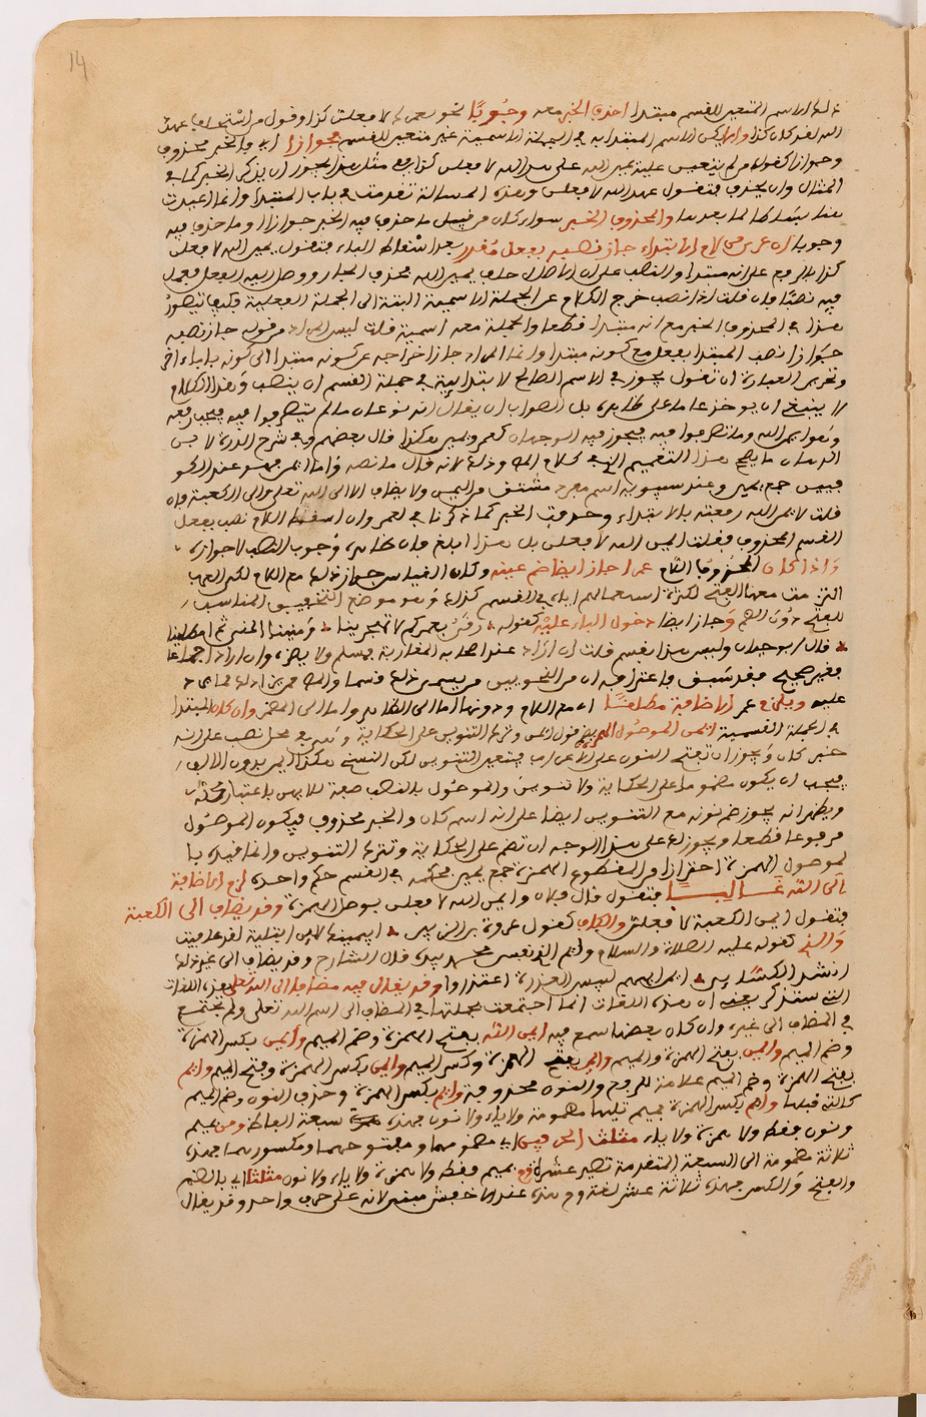 14
الاسم المتعين للقسم مبتدا احذف الخبر معه وجوبا نحو لعمرك لافعلن كذا وقول من استحلف عهد
الله لقد كان كذا وان يكن الاسم المبتدا به في الجملة الاسمية غير متعين للقسم فجوازا اي فالخبر محذوف
وجوازا كقولك لم يتعين عليه يمين الله على هذا لافعلن كذا مثل هذا يجوز ان يذكر الخبر كما في
المثال وان يحذف فتقول عهد الله لافعلن وهذه المسالة تقدمت في باب المبتدا وانما اعيدت
هنا لما بعدها والمحذوف الخبر سواء كان من قبيل ما حذف فيه الخبر جوازا او ما حذف فيه
وجوبا ان عرى من لام الابتداء جاز نصبه بفعل مقدر بعد اسقاط الباء فتقول يمين الله لافعلن
كذا بالرفع على انه مبتدا والنصب على ان الاصل احلف بيمين الله فحذف الجار ووصل اليه الفعل فعمل
فيه نصبا فان قلت اذا نصب خرج الكلام عن الجملة الاسمية البتة الى الجملة الفعلية فكيف يتصور
هذا في المحذوف الخبر مع انه مبتدا قطعا والجملة معه اسمية قلت ليس المراد من قوله جاز نصبه
جواز نصب المبتدا بفعل مع كونه مبتدا وانما المراد جاز اخراجه عن كونه مبتدا الى كونه بابا اخر
وتحرير العبارة ان تقول يجوز في الاسم الصالح لابتدائية في جملة القسم ان ينصب وهذا الكلام
لا ينبغي ان يوخذ عاما على ظاهره بل الصواب ان يقال انه نوعان ما لم يتصرفوا فيه فيجب رفعه
وهو ايمن الله وما تصرفوا فيه فيجوز فيه الوجهان كعمر ويمين هكذا قال بعضهم وفي شرح الدرة لابن
الدهان ما يصحح هذا التعميم الذي في كلام المص وذلك لانه قال ما نصه واما ايمن فهو عند الكو
فيين جمع يمين وعند سيبويه اسم مفرد مشتق من اليمن ولا يضاف الا الى الله تعلى والى الكعبة فان
قلت لايمن الله رفعته بالابتداء وحذفت الخبر كما ذكرنا في لعمر وان اسقطت اللام نصب بفعل
القسم المحذوف فقلت ايمن الله لافعلن بل هذا ابلغ فان ظاهره وجوب النصب لا جوازه
واذا كان المحذوف الخبر عمرا جاز ايضا ضم عينه وكان القياس جواز ذلك مع اللام لكن العرب
التزمت معها الفتح لكثرة استعمالهم اياه في القسم كذلك وهو موضع التخفيف المناسب
للفتح دون الضم وجاز ايضا دخول الباء عليه كقوله رقي بعمركم لا تهجرينا ومنينا المنى ثم امطلينا
قال ابو حيان وليس هذا بقسم قلت ان اراد عند اصحابه المغاربة فمسلم ولا يضر وان اراد اجماعا
فغير صحيح فقد سبق فاعترافه ان من النحويين من يسمى ذلك قسما والمص ممن اذلك مما عاد
عليه ويلزم عمر الاضافة مطلقا اي مع اللام ودونها اما الى الظاهر واما الى المضمر وان كان المبتدا
في الجملة القسمية ايمن الموصول الهمزة
خبر كان ويجوز ان تفتح النون على الاعراب فيتعين التنوين لكن النسخ هكذا ايمن بدون الالف
فيجب ان يكون مضموما على الحكاية ولا تنوين والموصول بالنصب صفة لايمن باعتبار محله
ويظهر انه يجوز ضم نونه مع التنوين ايضا على انه اسم كان والخبر محذوف فيكون الموصول
مرفوعا قطعا ويجوز لك على هذا الوجه ان تضم على الحكاية وتترك التنوين وانما قيده با
لموصول الهمزة احترازا من المقطوع الهمزة جمع يمين فحكمه في القسم حكم واحده لزم الاضافة
الى الله غالبا فتقول قال فلان وايمن الله لافعلن بوصل الهمزة وقد يضاف الى الكعبة
فتقول ايمن الكعبة لافعلن والكاف كقول عروة بن الزبير ايمنك لئن ابتليت لقد عافيت
والذي كقوله عليه الصلاة والسلام وايم الذي نفس محمد بيده قال الشارح وقد يضاف الى غير ذلك
انشد الكسائي ايمن ابيهم لبيس العذرة اعتذروا وقد يقال فيه مضافا الى الله تعلى هذه اللغات
التي ستذكر يعني ان هذه اللغات انما اجتمعت بجملتها في المضاف الى اسم الله تعلى ولم تجتمع
في المضاف الى غيره وان كان بعضها سمع فيه ايمن الله بفتح الهمزة وضم الميم وايمن بكسر الهمزة
وضم الميم وايمن بفتح الهمزة والميم وايمن بفتح الهمزة وكسر الميم وايمن بكسر الهمزة وفتح الميم وايم
بفتح الهمزة وضم الميم علامة للرفع والنون محذوفة وايم بكسر الهمزة وحذف النون وضم الميم
كالتي قبلها وام بكسر الهمزة فميم تليها مضمومة ولا ياء ولا نون فهذه سبعة الفاظ ومن بميم
ونون فقط ولا همزة ولا ياء مثلث الحرفين اي مضمومهما ومفتوحهما ومكسورهما فهذه
ثلاثة مضمومة الى السبعة المتقدمة تصير عشرة وم بميم فقط ولا همزة ولا ياء ولا نون مثلثا اي بالضم
والفتح والكسر فهذه ثلاثة عشر لغة وم هذه عند الاخفش مبني لانه على حرف واحد وقد يقال